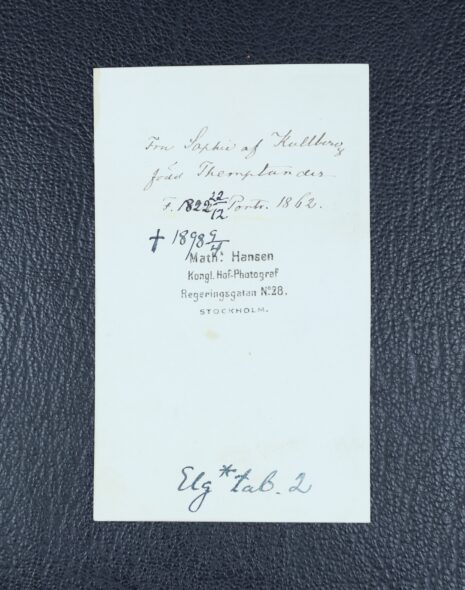 Fru Sophie af Kullberg
född Themptander
F. 1822 22/12 Portr. 1862.
† 1898 9/4
Math. Hansen
Kongl. Hof-Photograf
Regeringsgatan No28.
STOCKHOLM.
Elg * tab. 2